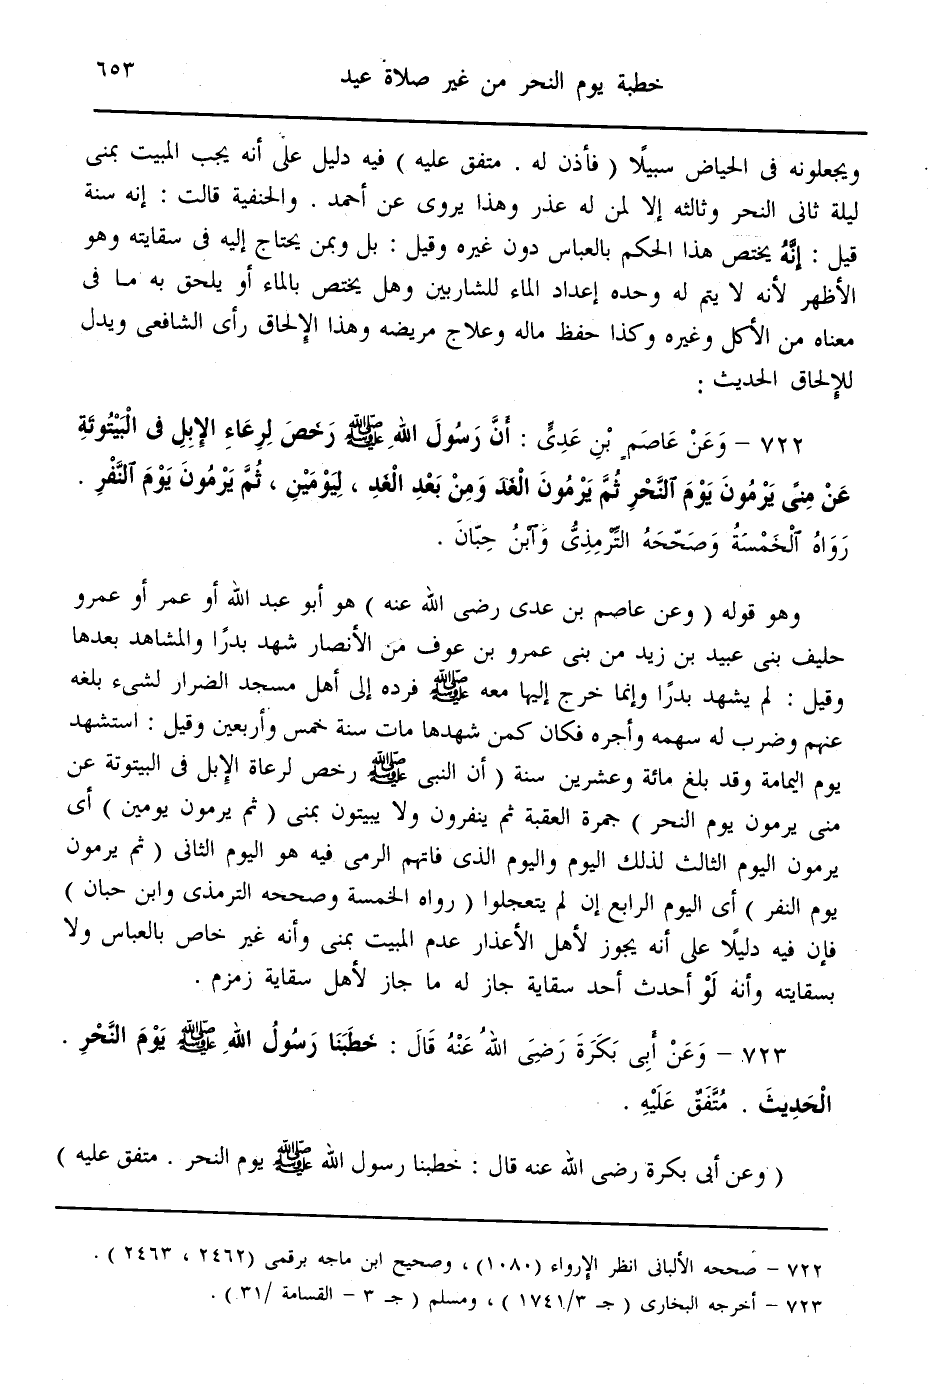 خطبة يوم النحر من غير صلاة عيد
٦٥٣
ويجعلونه فى الحياض سبيلًا ( فأذن له . متفق عليه ) فيه دليل على أنه يجب المبيت بمنى
ليلة ثانى النحر وثالثه إلا لمن له عذر وهذا يروى عن أحمد . والحنفية قالت : إنه سنة
قيل : إنَّهُ يختص هذا الحكم بالعباس دون غيره وقيل : بل وبمن يحتاج إليه فى سقايته وهو
الأظهر لأنه لا يتم له وحده إعداد الماء للشاربين وهل يختص بالماء أو يلحق به ما فى
معناه من الأكل وغيره وكذا حفظ ماله وعلاج مريضه وهذا الإلحاق رأى الشافعى ويدل
للإلحاق الحديث :
٧٢٢ – وَعَنْ عَاصَمِ بْنِ عَدِىٍّ : أَنَّ رَسُولَ اللهِ ﷺ رَخصَ لِرِعَاءِ الإبِلِ فى الْبَيْتُوتَةِ
عَنْ مِنًى يَرْمُونَ يَوْمَ النَّحْرِ ثُمَّ يَرْمُونَ الْغَدَ وَمِنْ بَعْدِ الْغَدِ ، لِيَوْمَيْنِ ، ثُمَّ يَرْمُونَ يَوْمَ النَّفْرِ .
رَوَاهُ الْخَمْسَةُ وَصَحّحَهُ التِّرْمِذِىُّ وَآبْنُ حِبّانَ .
وهو قوله ( وعن عاصم بن عدى رضى الله عنه ) هو أبو عبد الله أو عمر أو عمرو
حليف بنى عبيد بن زيد من بنى عمرو بن عوف من الأنصار شهد بدرًا والمشاهد بعدها
وقيل : لم يشهد بدرًا وإنما خرج إليها معه ﷺ فرده إلى أهل مسجد الضرار لشىء بلغه
عنهم وضرب له سهمه وأجره فكان كمن شهدها مات سنة خمس وأربعين وقيل : استشهد
يوم اليمامة وقد بلغ مائة وعشرين سنة ( أن النبى ﷺ رخص لرعاة الإبل فى البيتوتة عن
منى يرمون يوم النحر ) جمرة العقبة ثم ينفرون ولا يبيتون بمنى ( ثم يرمون يومين ) أى
يرمون اليوم الثالث لذلك اليوم واليوم الذى فاتهم الرمى فيه هو اليوم الثانى ( ثم يرمون
يوم النفر ) أى اليوم الرابع إن لم يتعجلوا ( رواه الخمسة وصححه الترمذى وابن حبان )
فإن فيه دليلًا على أنه يجوز لأهل الأعذار عدم المبيت بمنى وأنه غير خاص بالعباس ولا
بسقايته وأنه لَوْ أحدث أحد سقاية جاز له ما جاز لأهل سقاية زمزم .
٧٢٣ – وَعَنْ أَبِى بَكَرَةَ رَضِىَ اللهُ عَنْهُ قَالَ : خَطَبَنَا رَسُولُ اللهِ ﷺ يَوْمَ النَّحْرِ .
الْحَدِيثَ . مُتَّفَقٌ عَلَيْهِ .
( وعن أبى بكرة رضى الله عنه قال : خطبنا رسول الله ﷺ يوم النحر . متفق عليه )
٧٢٢ – صححه الألبانى انظر الإرواء (١٠٨٠) ، وصحيح ابن ماجه برقمى (٢٤٦٢ ، ٢٤٦٣ ) .
٧٢٣ – أخرجه البخارى ( جـ ٣/ ١٧٤١ ) ، ومسلم ( جـ ٣ – القسامة /٣١ ) .